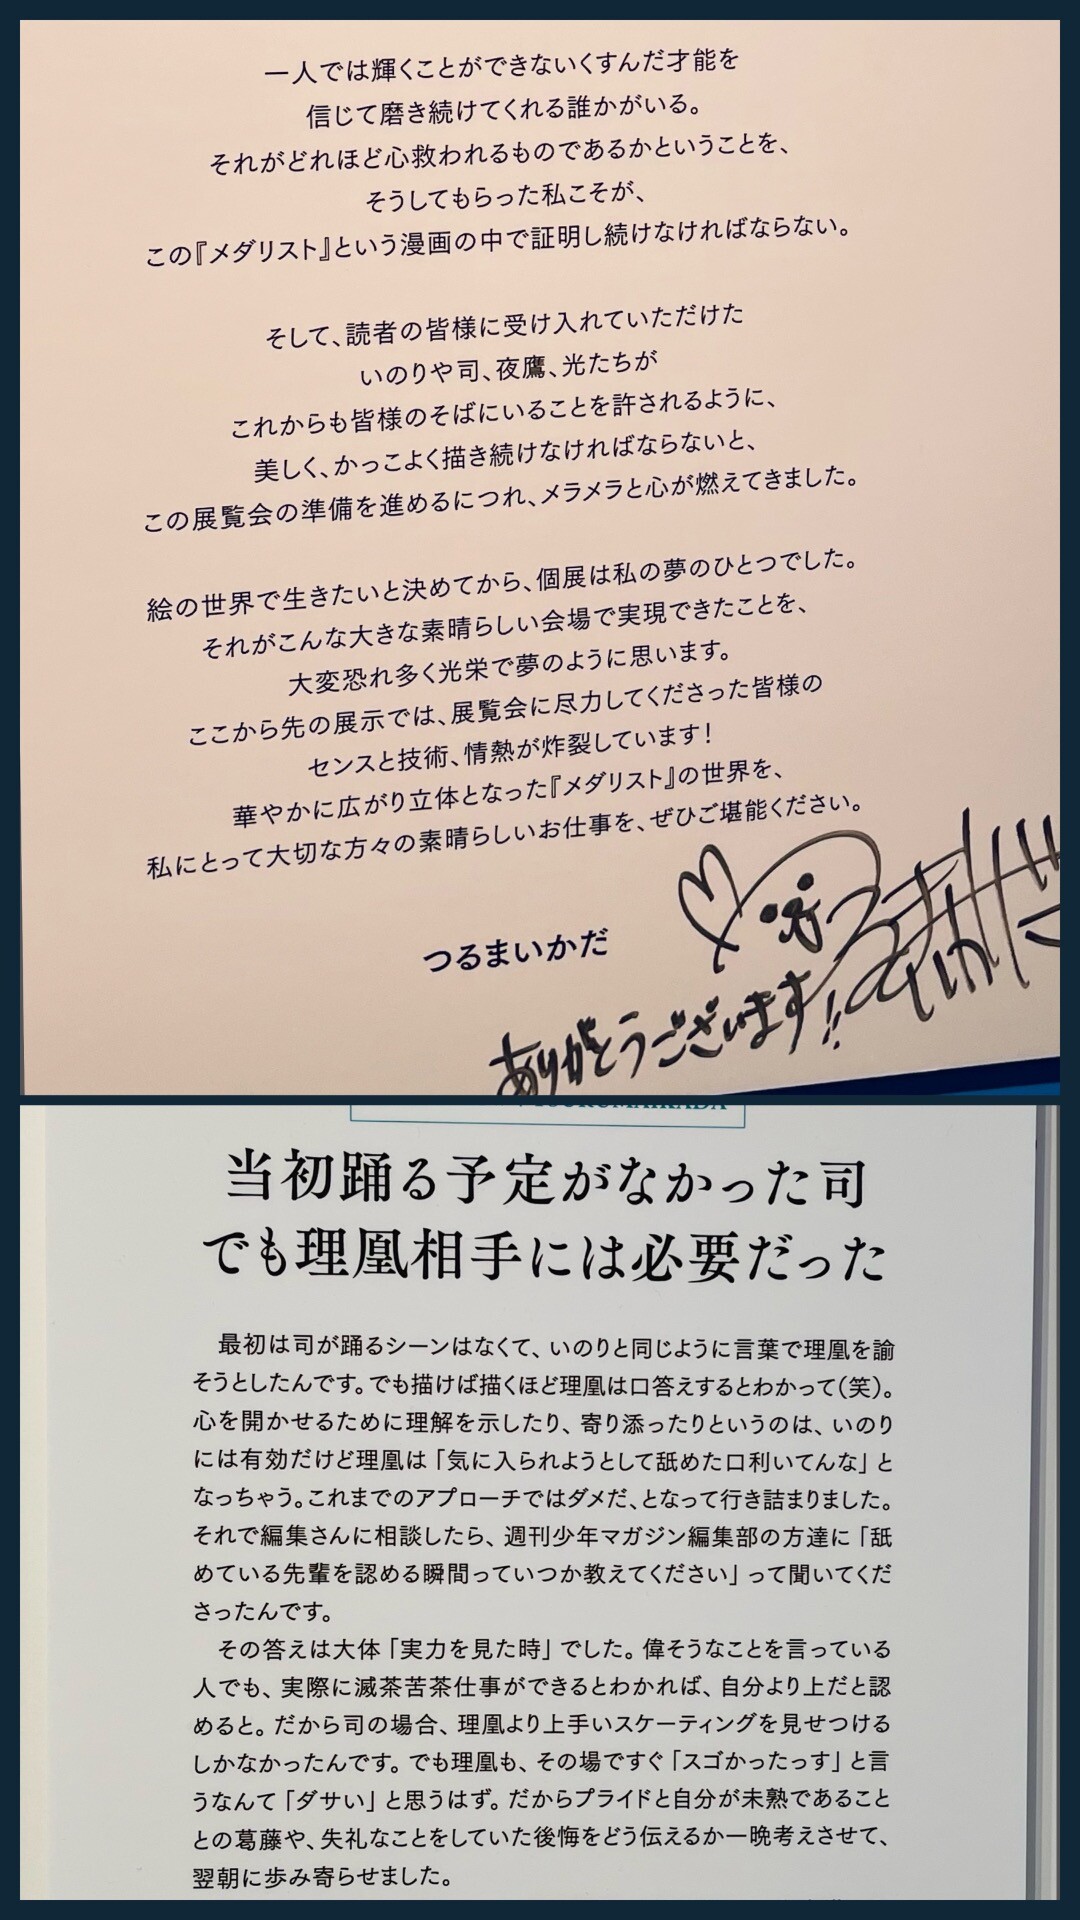 一人では輝くことができないくすんだ才能を
信じて磨き続けてくれる誰かがいる。
それがどれほど心救われるものであるかということを、
そうしてもらった私こそが、
この『メダリスト』という漫画の中で証明し続けなければならない。
そして、読者の皆様に受け入れていただけた
いのりや司、夜鷹、光たちが
これからも皆様のそばにいることを許されるように、
美しく、かっこよく描き続けなければならないと、
この展覧会の準備を進めるにつれ、メラメラと心が燃えてきました。
絵の世界で生きたいと決めてから、個展は私の夢のひとつでした。
それがこんな大きな素晴らしい会場で実現できたことを、
大変恐れ多く光栄で夢のように思います。
ここから先の展示では、展覧会に尽力してくださった皆様の
センスと技術、情熱が炸裂しています!
華やかに広がり立体となった『メダリスト』の世界を、
私にとって大切な方々の素晴らしいお仕事を、ぜひご堪能ください。
つるまいかだ
ありがとうございます!!
TSURUMAIKADA
当初踊る予定がなかった司
でも理凰相手には必要だった
最初は司が踊るシーンはなくて、いのりと同じように言葉で理凰を諭
そうとしたんです。でも描けば描くほど理凰は口答えするとわかって(笑)。
心を開かせるために理解を示したり、寄り添ったりというのは、いのり
には有効だけど理凰は「気に入られようとして舐めた口利いてんな」と
なっちゃう。これまでのアプローチではダメだ、となって行き詰まりました。
それで編集さんに相談したら、週刊少年マガジン編集部の方達に「舐
めている先輩を認める瞬間っていつか教えてください」って聞いてくだ
さったんです。
その答えは大体「実力を見た時」でした。偉そうなことを言っている
人でも、実際に滅茶苦茶仕事ができるとわかれば、自分より上だと認
めると。だから司の場合、理凰より上手いスケーティングを見せつける
しかなかったんです。でも理凰も、その場ですぐ「スゴかったっす」と言
うなんて「ダサい」と思うはず。だからプライドと自分が未熟であること
との葛藤や、失礼なことをしていた後悔をどう伝えるか一晩考えさせて、
翌朝に歩み寄らせました。